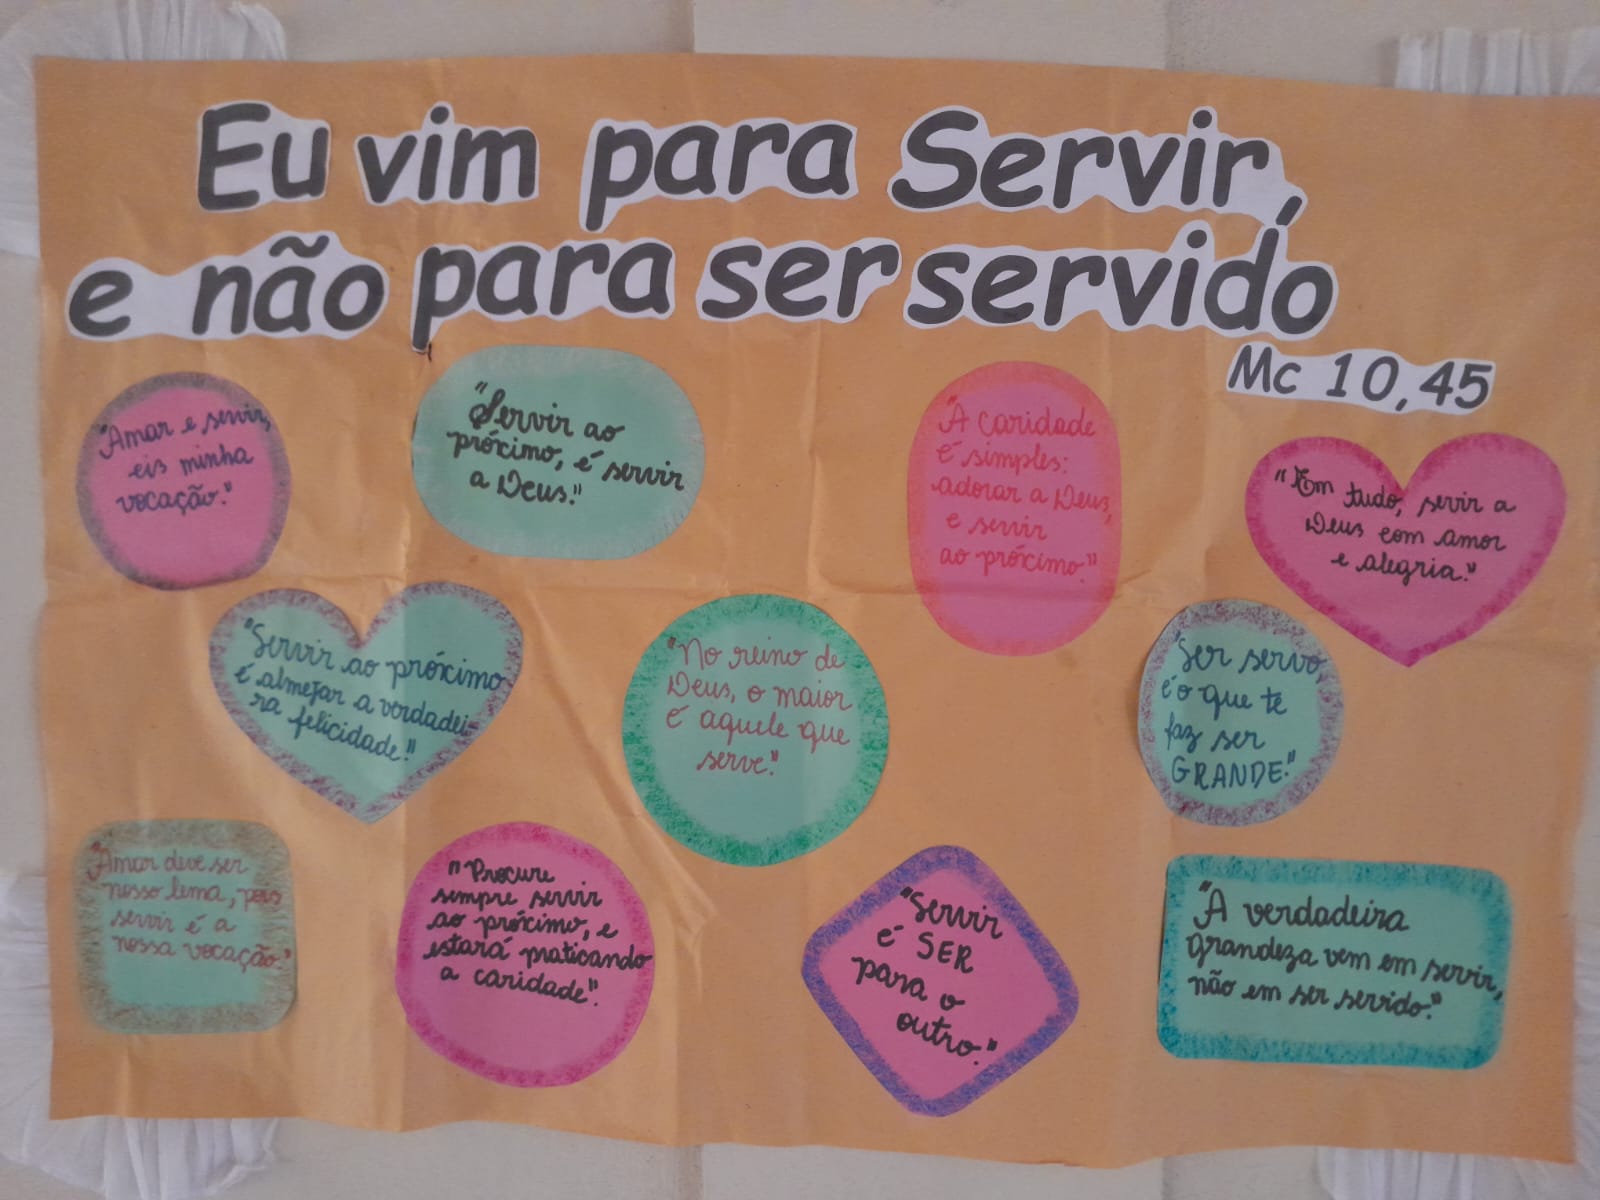 Eu vim para Servir,
e não para ser servido
Mc 10,45
"Amar e servir,
eis minha
vocação."
"Servir ao
próximo, é servir
a Deus."
"A caridade
é simples:
adorar a Deus,
e servir
ao próximo."
"Em tudo, servir a
Deus com amor
e alegria."
"Servir ao próximo
é almejar a verdadei-
ra felicidade."
"No reino de
Deus, o maior
é aquele que
serve."
"Ser servo
é o que te
faz ser
GRANDE."
"Amar deve ser
nosso lema, pois
servir é a
nossa vocação."
"Procure
sempre servir
ao próximo, e
estará praticando
a caridade".
"Servir
é SER
para o
outro."
"A verdadeira
grandeza vem em servir,
não em ser servido."